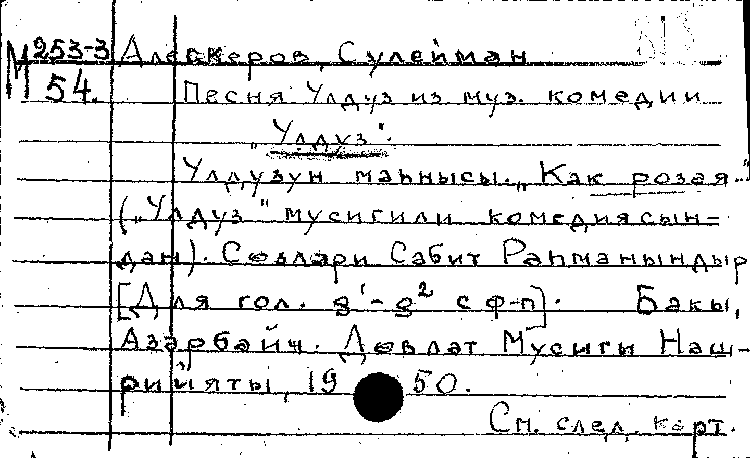 М 253-3 Алескеров, Сулейман
54. Песня Улдуз из муз. комедии
„Улдуз“.
Улдузун маһнысы. „Как розая..“
(„Улдуз“ мусигили комедиясын-
дан). Сөзлэри Сабит Раһманындыр
[Для гол. g¹-g² с ф-п]. Бакы,
Азэрбайч. Дөвлэт Мусиги Наш-
рийяты, 19 50.
См. след. карт.